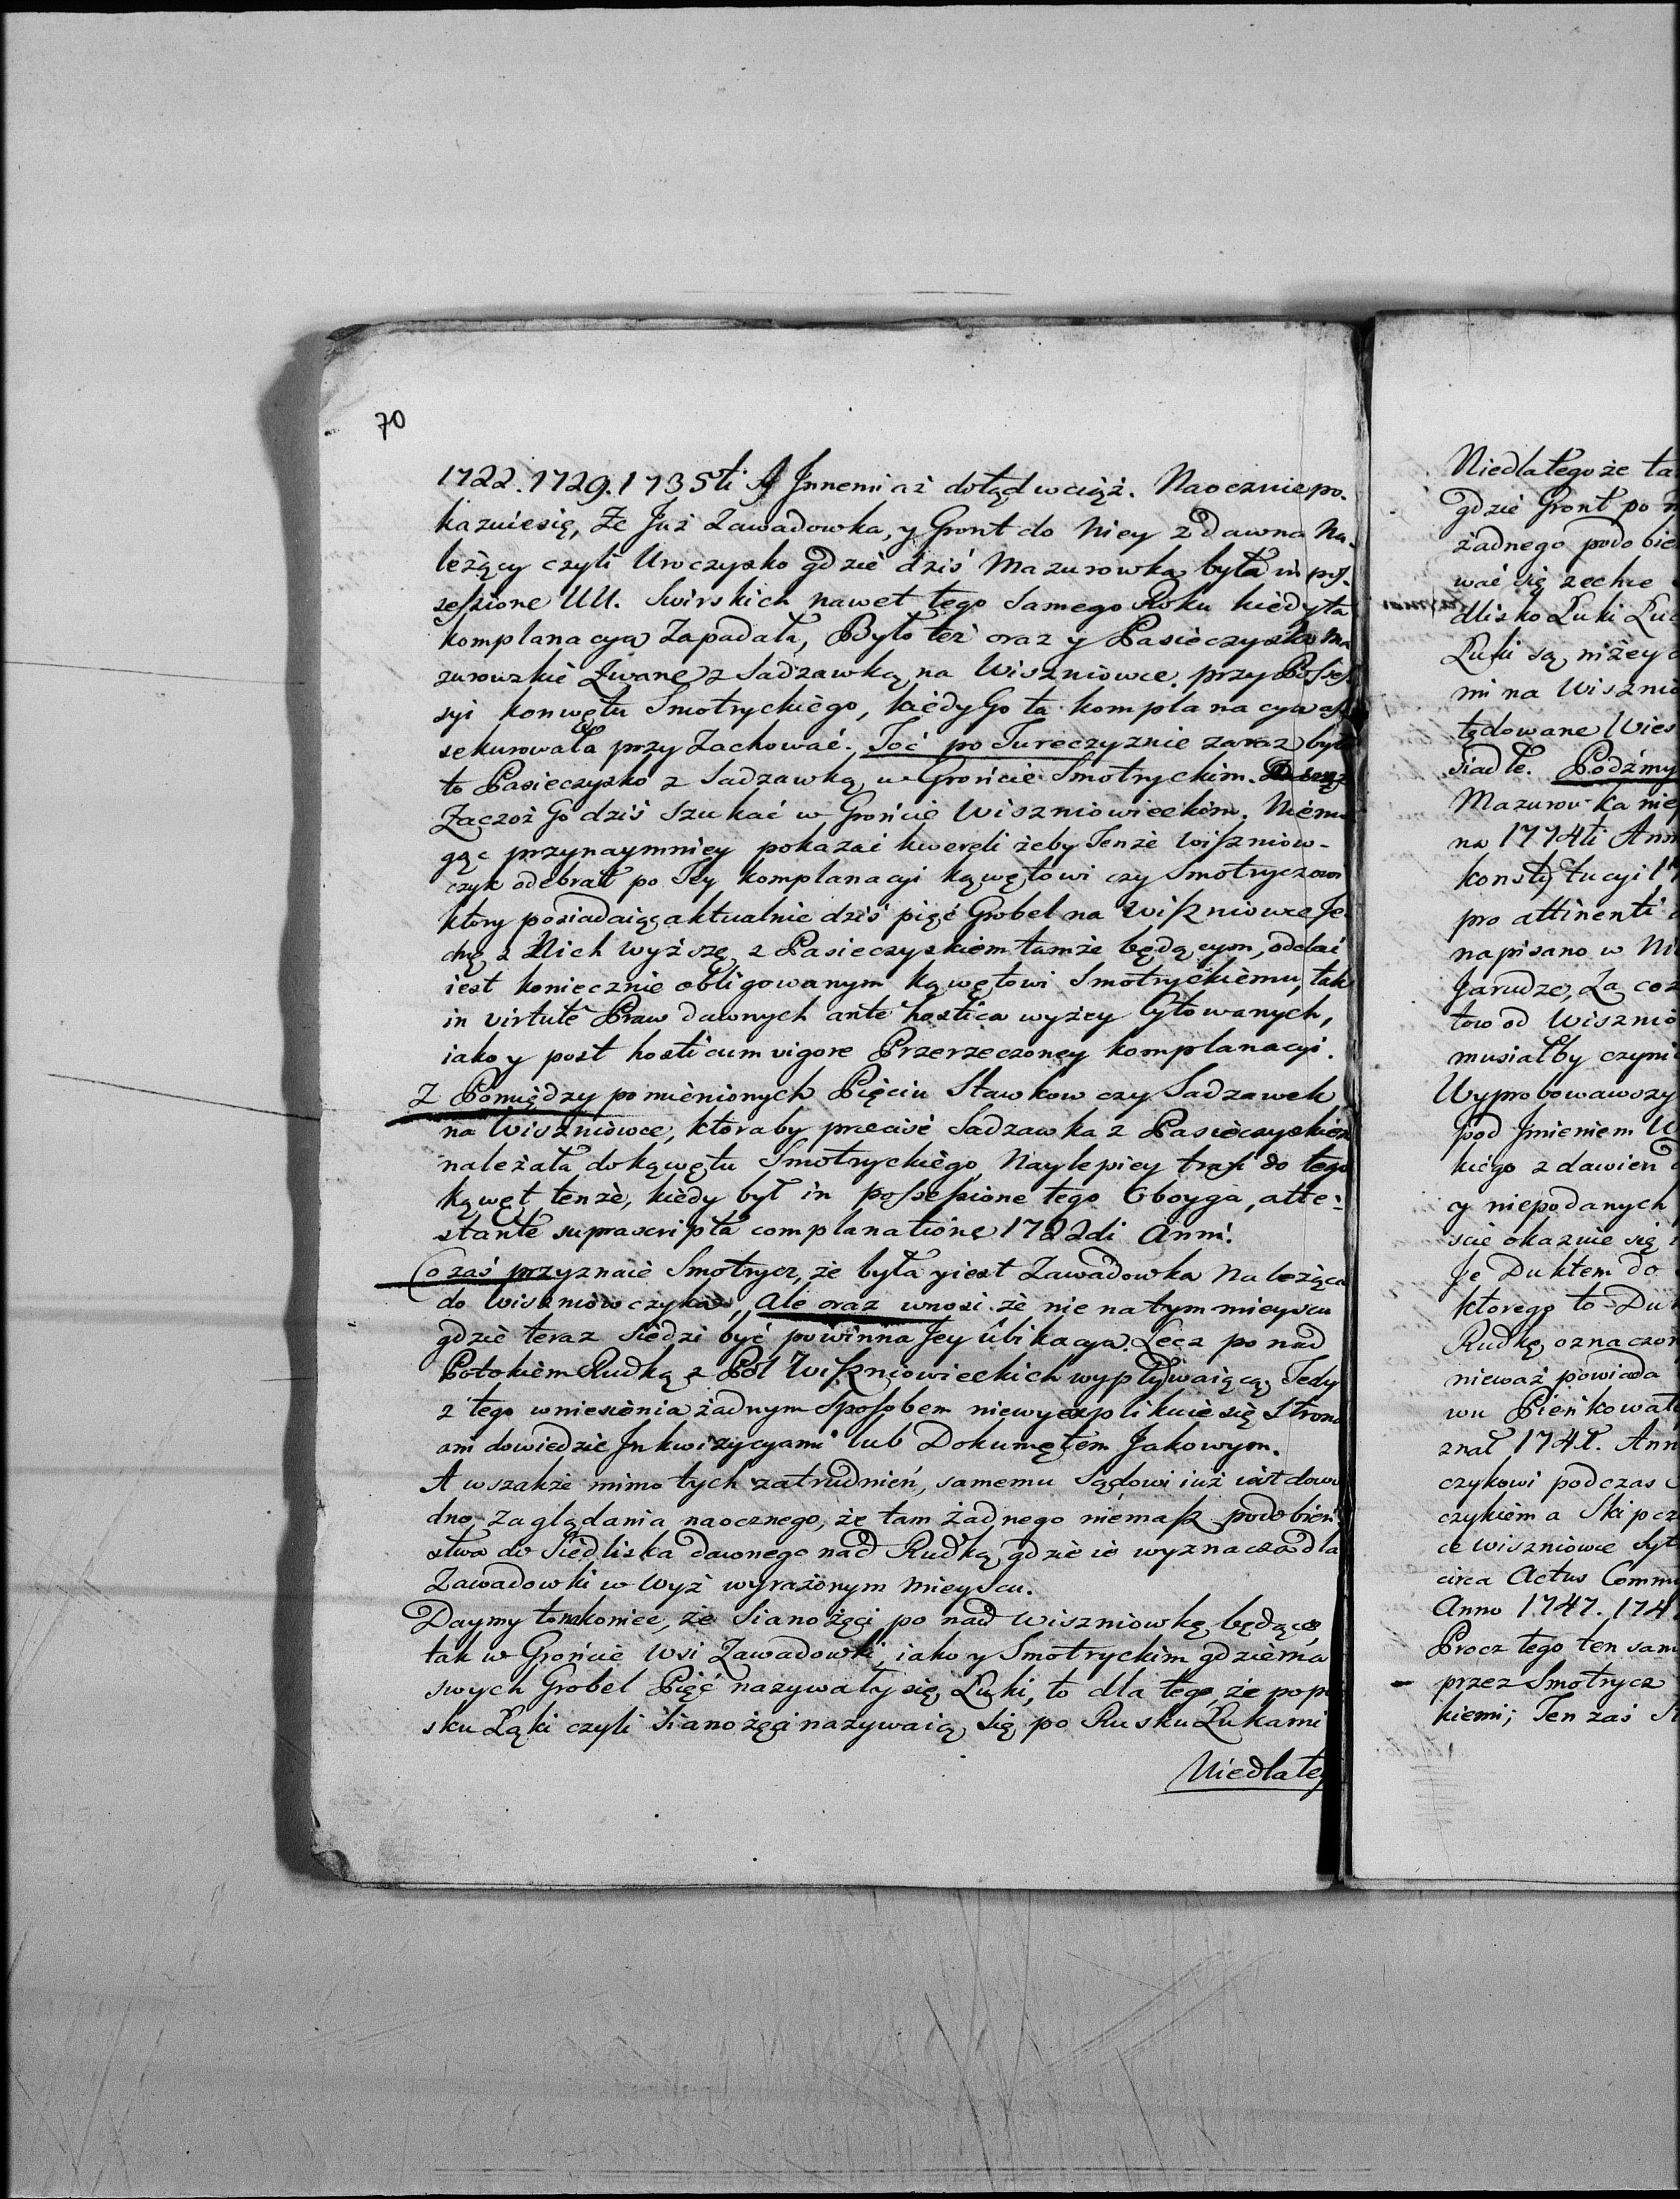 70
1722. 1729. 1735ti y Jnnemi aż dotąd wciąż. Naocznie po-
kazuie się, Ze Już Zawadowka, y Gront do Niey z dawna Na-
leżący czyli Uroczysko gdzie dziś Mazurowka była in pos-
sessione UU. Swirskich nawet tego samego Roku kiedy ta
komplanacya Zapadała, Było też oraz y Pasieczysko Ma
zurowskie Zwane z Sadzawką na Wiszniowce przy Posses
syi konwętu Smotryckiego, kiedy Go ta komplanacya as
sekurowała przy Zachować. Toć po Tureczyznie zaraz było
to Pasieczysko z Sadzawką w Grońcie Smotryckim.
Zaczoż Go dziś szukać w Grońcie Wiszniowieckim. Niemo
gąc przynaymniey pokazać kwereli żeby Tenże Wiszniow-
czyk odebrał po Tey komplanacyi kąwętowi czy Smotryczowi
ktory posiadaiąc aktualnie dziś pięć Grobel na Wiszniowce Je
dnę z Nich wyższę z Pasieczyskiem tamże będącym, oddać
iest koniecznie obligowanym kąwętowi Smotryckiemu, tak
in virtute Praw dawnych ante hostica wyżey Cytowanych,
iako y post hosticum vigore Przerzeczoney komplanacyi.
Z Pomiędzy pomienionych Pięciu Stawkow czy Sadzawek
na Wiszniowce, ktoraby precise Sadzawka z Pasieczyskiem
należała do kąwętu Smotryckiego, Naylepiey trafi do tego
kąwęt tenże, kiedy był in possessione tego Oboyga, atte-
stante suprascripta complanatione 1722di Anni.
Co zaś przyznaie Smotrycz, że była y iest Zawadowka Należąca
do Wiszniowczyka, Ale oraz wnosi że nie na tym mieyscu
gdzie teraz siedzi być powinna Jey ubikacya. Lecz ponad
Potokiem Rudką z Pól Wiszniowieckich wypływaiącą. Tedy
z tego wniesienia żadnym sposobem niewyexplikuie się Strona
ani dowiedzie Jnkwizycyami lub Dokumętem Jakowym.
A wszakże mimo tych zatrudnień, samemu Sądowi iuż iest dowo
dno Zaglądania naocznego, że tam żadnego niemasz podobień
stwa do Siedliska dawnego nad Rudką, gdzie ie wyznacza dla
Zawadowki w Wyż wyrażonym Mieyscu.
Daymy to nakoniec, że Sianożęci po nad Wiszniowkę będące,
tak w Grońcie Wsi Zawadowki, iako y Smotryckim gdzie ma
swych Grobel Pięć nazywały się Łuki, to dla tego że po p
sku Łąki czyli Sianożęci nazywaią się po Rusku Łukami
Niedlateg
Niedlatego że ta
gdzie Gront po
żadnego podobie
wać się zechce
dlisko Łuki
Łuki są niżey
mi na Wisznio
tędowane Wies
siadłe. Podźmy
Mazurowka nie
na 1774ti Ann
konstytucyi
pro attinenti
napisano w Ni
Jarudze, Za coż
tow od Wisznio
musiałby czyni
Wyprobowawszy
pod Jmieniem
kiego z dawien
cy niepodanych
scie okazuie się
Je Duktem do
ktorego to Du
Rudkę oznaczon
nieważ powiada
wu Pieńkowat
znał 1741. Ann
czykowi podczas
czykiem a Skipcz
ce Wiszniowce
circa Actus Comm
Anno 1747. 174
Procz tego ten sam
przez Smotrycz
kiemi; Ten zaś